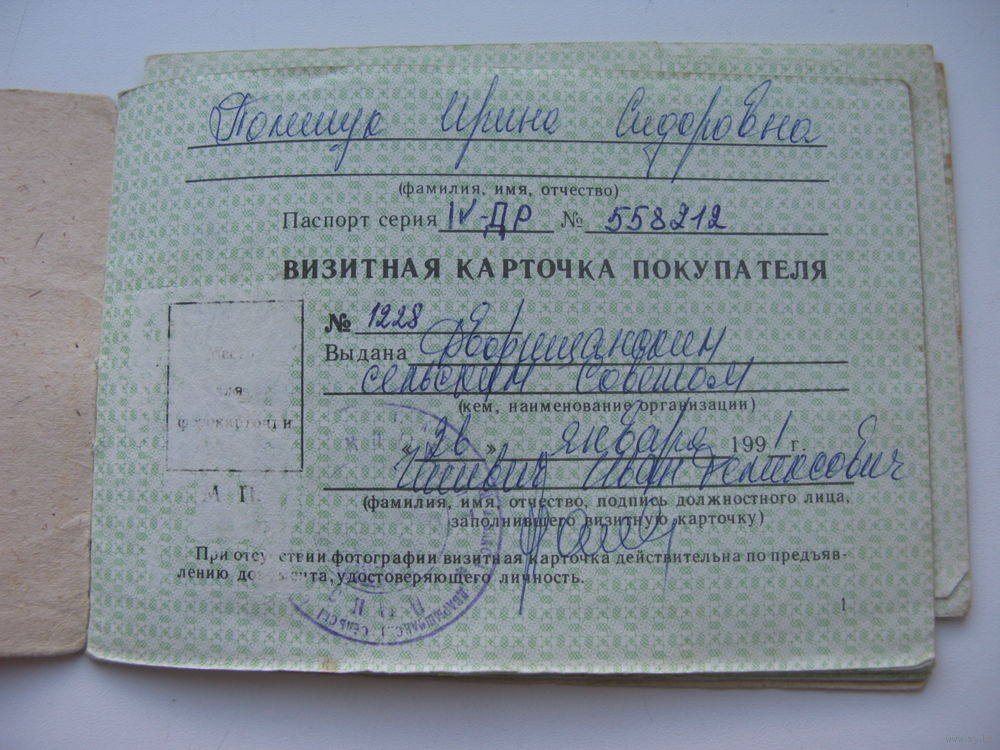 Полещук Ирина Сидоровна
(фамилия, имя, отчество)
Паспорт серия IV-ДР № 558212
ВИЗИТНАЯ КАРТОЧКА ПОКУПАТЕЛЯ
№ 1228
Выдана Дворищанским
сельским Советом
(кем, наименование организации)
« 26 » января 1991 г.
Иван
(фамилия, имя, отчество, подпись должностного лица,
заполнившего визитную карточку)
Место
для
фотокарточки
М. П.
При отсутствии фотографии визитная карточка действительна по предъяв-
лению документа, удостоверяющего личность.
1